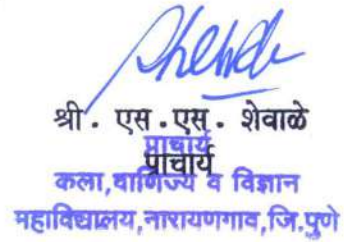 श्री. एस.एस. शेवाळे
प्राचार्य
प्राचार्य
कला,वाणिज्य व विज्ञान
महाविद्यालय,नारायणगाव,जि.पुणे